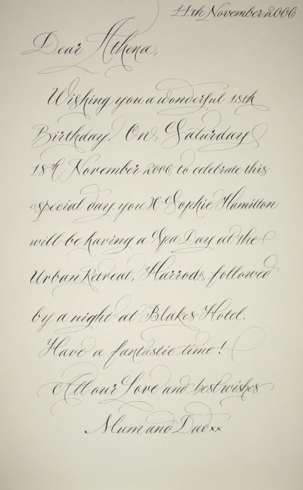 11th November 2006
Dear Athena,
Wishing you a wonderful 18th
Birthday. On Saturday
18th November 2006, to celebrate this
special day you & Sophie Hamilton
will be having a Spa Day at the
Urban Retreat, Harrods, followed
by a night at Blakes Hotel.
Have a fantastic time!
All our Love and best wishes
Mum and Dad xx